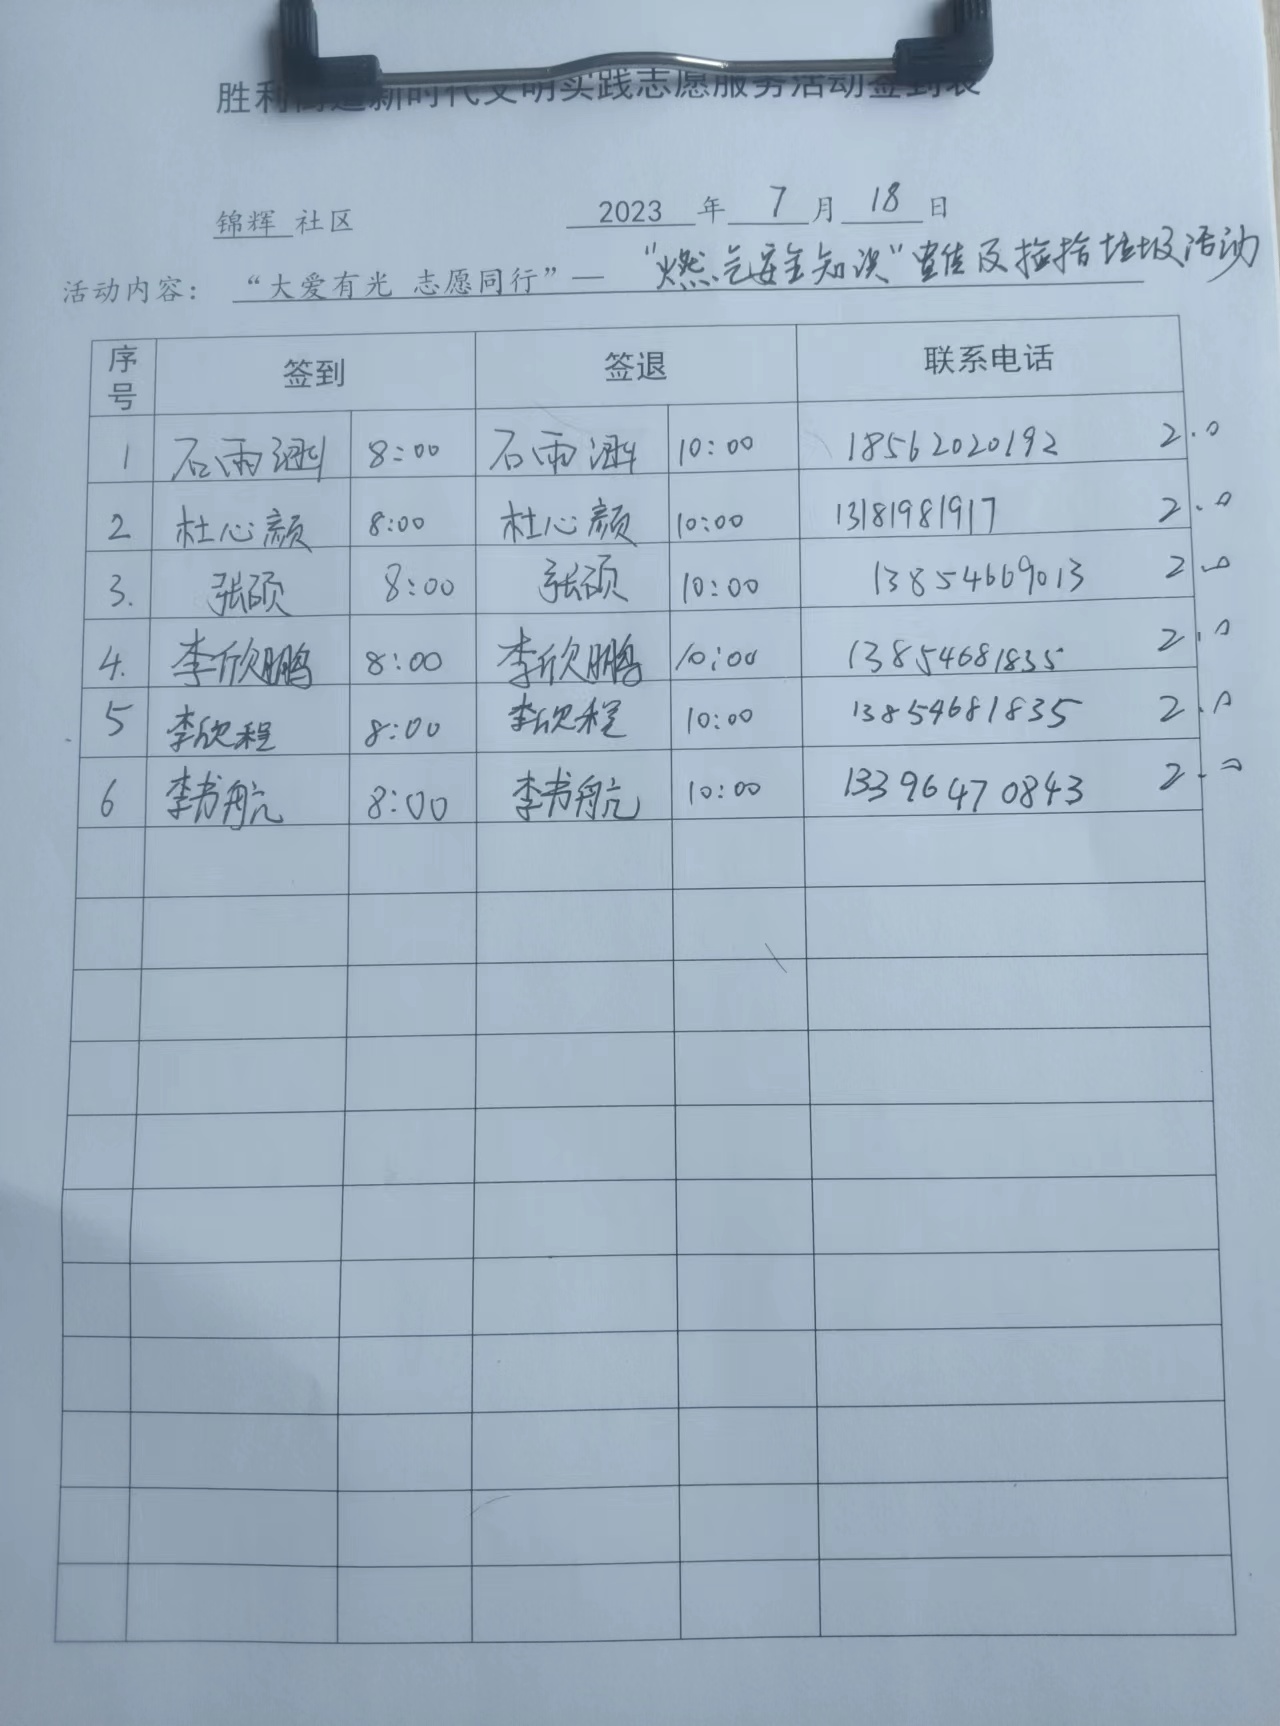 胜利街道新时代文明实践志愿服务活动签到表
锦辉 社区 2023 年 7 月 18 日
活动内容： “大爱有光 志愿同行”— “燃气安全知识”宣传及捡拾垃圾活动
序号 签到 签退 联系电话
1 石雨涵 8:00 石雨涵 10:00 18562020192 2.0
2 杜心颜 8:00 杜心颜 10:00 13181981917 2.0
3. 张硕 8:00 张硕 10:00 13854669013 2.0
4. 李欣鹏 8:00 李欣鹏 10:00 13854681835 2.0
5 李欣程 8:00 李欣程 10:00 13854681835 2.0
6 李书航 8:00 李书航 10:00 13396470843 2.0